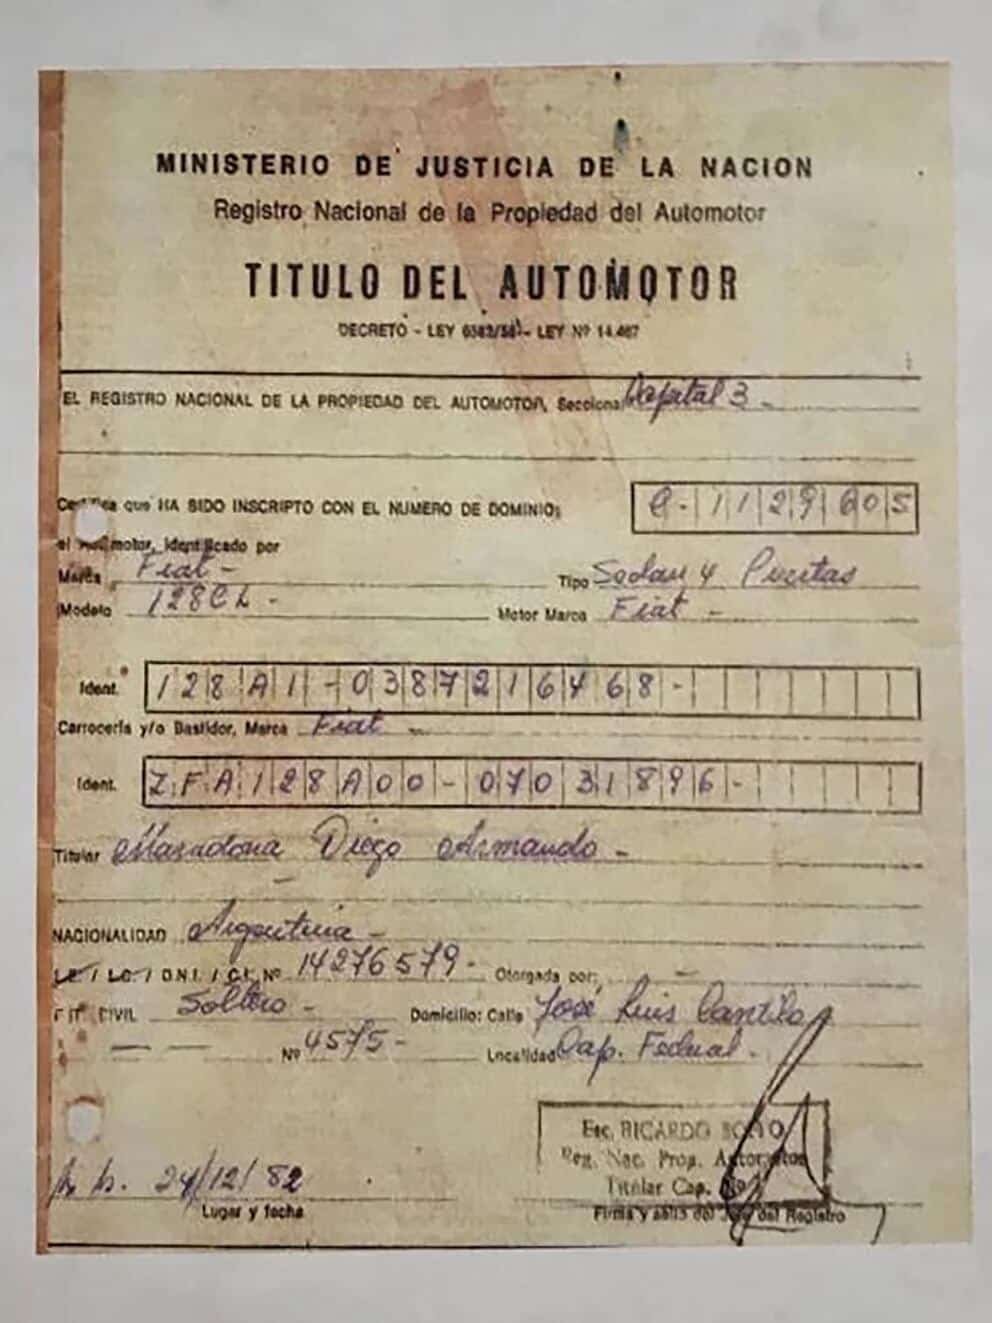 MINISTERIO DE JUSTICIA DE LA NACION
Registro Nacional de la Propiedad del Automotor
TITULO DEL AUTOMOTOR
DECRETO - LEY 6582/58 - LEY Nº 14.467
EL REGISTRO NACIONAL DE LA PROPIEDAD DEL AUTOMOTOR, Seccional Capital 3 -
Certifica que HA SIDO INSCRIPTO CON EL NUMERO DE DOMINIO: C-1129605
el Automotor, identificado por
Marca Fiat - Tipo Sedan 4 Puertas
Modelo 128CL - Motor Marca Fiat -
Ident. 128A1-0387216468-
Carrocería y/o Bastidor, Marca Fiat -
Ident. ZFA128A00-07031896-
Titular Maradona Diego Armando -
NACIONALIDAD Argentina -
L.E. / L.C. / D.N.I. / C.I. Nº 14276579- Otorgada por: -
EST. CIVIL Soltero - Domicilio: Calle José Luis Cantilo
Nº 4575- Localidad Cap. Federal -
Esc. RICARDO
Reg. Nac. Prop. Automotor
Titular Cap. Nº
Bs. As. 24/12/82
Lugar y fecha Firma y sello del Jefe del Registro